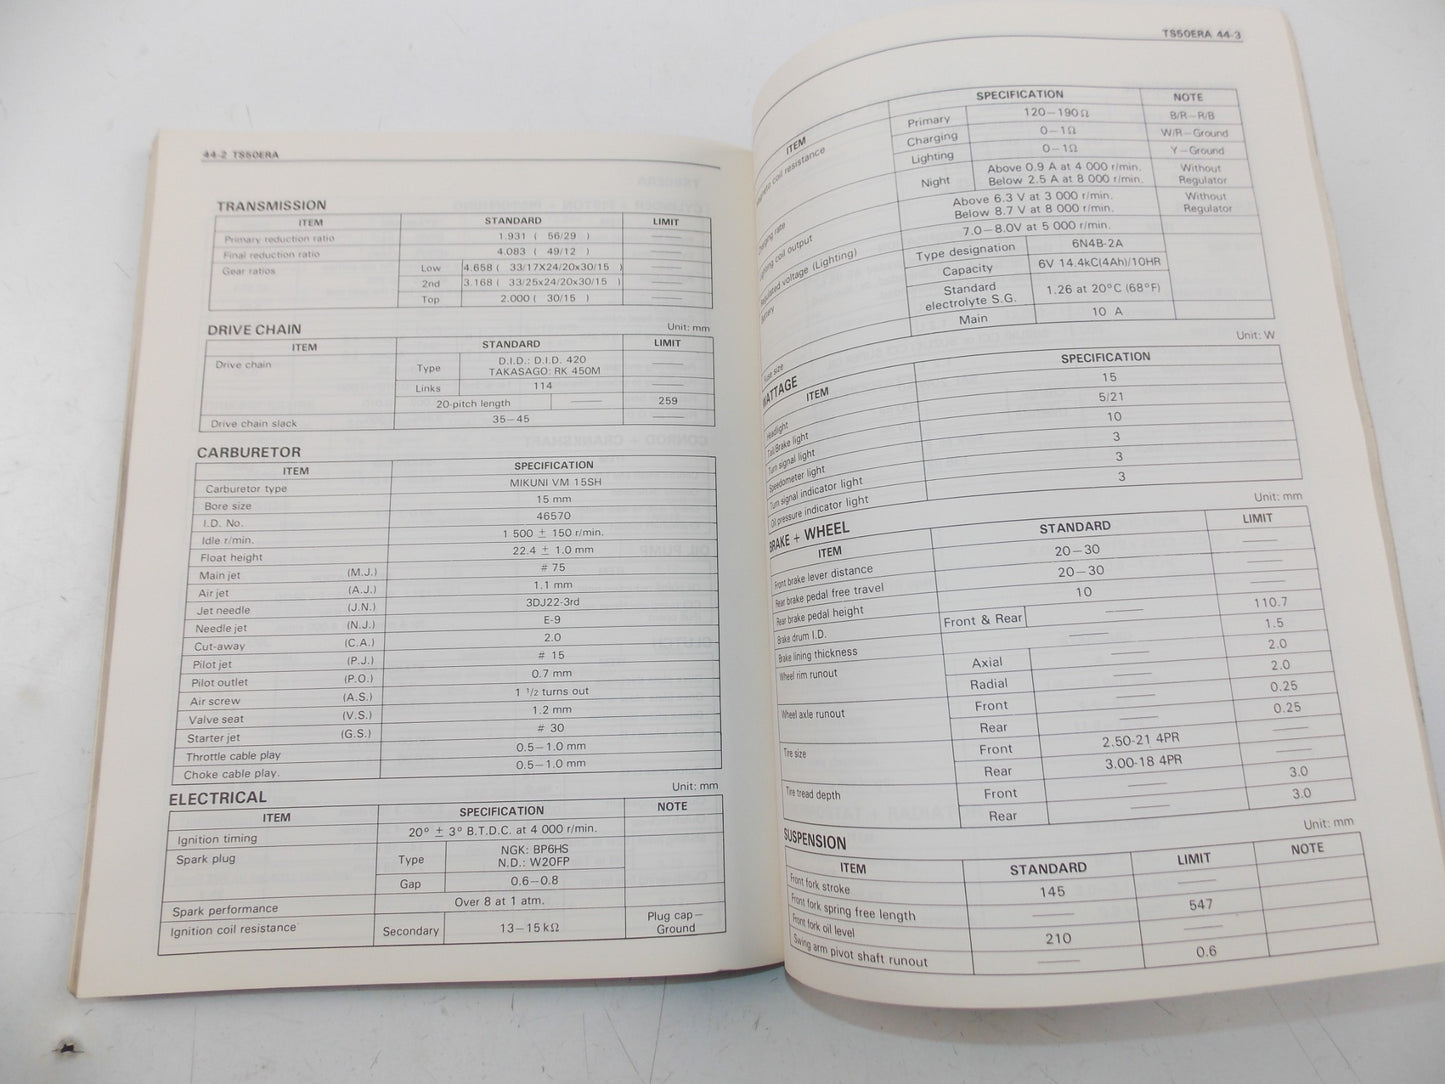 44-2 TS50ERA
TRANSMISSION
ITEM STANDARD LIMIT
Primary reduction ratio 1.931 ( 56/29 ) ——
Final reduction ratio 4.083 ( 49/12 ) ——
Gear ratios Low 4.658 ( 33/17X24/20x30/15 ) ——
2nd 3.168 ( 33/25x24/20x30/15 ) ——
Top 2.000 ( 30/15 ) ——
DRIVE CHAIN Unit: mm
ITEM STANDARD LIMIT
Drive chain Type D.I.D.: D.I.D. 420
TAKASAGO: RK 450M ——
Links 114 ——
20-pitch length —— 259
Drive chain slack 35–45 ——
CARBURETOR
ITEM SPECIFICATION
Carburetor type MIKUNI VM 15SH
Bore size 15 mm
I.D. No. 46570
Idle r/min. 1 500 ± 150 r/min.
Float height 22.4 ± 1.0 mm
Main jet (M.J.) # 75
Air jet (A.J.) 1.1 mm
Jet needle (J.N.) 3DJ22-3rd
Needle jet (N.J.) E-9
Cut-away (C.A.) 2.0
Pilot jet (P.J.) # 15
Pilot outlet (P.O.) 0.7 mm
Air screw (A.S.) 1 1/2 turns out
Valve seat (V.S.) 1.2 mm
Starter jet (G.S.) # 30
Throttle cable play 0.5–1.0 mm
Choke cable play. 0.5–1.0 mm
ELECTRICAL Unit: mm
ITEM SPECIFICATION NOTE
Ignition timing 20° ± 3° B.T.D.C. at 4 000 r/min.
Spark plug Type NGK: BP6HS
N.D.: W20FP
Gap 0.6–0.8
Spark performance Over 8 at 1 atm.
Ignition coil resistance Secondary 13–15 kΩ Plug cap–
Ground
TS50ERA 44-3
ITEM SPECIFICATION NOTE
coil resistance Primary 120–190 Ω B/R–R/B
Charging 0–1Ω W/R–Ground
Lighting 0–1Ω Y–Ground
rate Night Above 0.9 A at 4 000 r/min.
Below 2.5 A at 8 000 r/min. Without
Regulator
coil output Above 6.3 V at 3 000 r/min.
Below 8.7 V at 8 000 r/min. Without
Regulator
Regulated voltage (Lighting) 7.0–8.0V at 5 000 r/min.
Battery Type designation 6N4B-2A
Capacity 6V 14.4kC(4Ah)/10HR
Standard
electrolyte S.G. 1.26 at 20°C (68°F)
size Main 10 A
WATTAGE Unit: W
ITEM SPECIFICATION
Headlight 15
Tail/Brake light 5/21
Turn signal light 10
Speedometer light 3
Turn signal indicator light 3
Oil pressure indicator light 3
BRAKE + WHEEL Unit: mm
ITEM STANDARD LIMIT
Front brake lever distance 20–30 ——
Rear brake pedal free travel 20–30 ——
Rear brake pedal height 10 ——
Brake drum I.D. Front & Rear —— 110.7
Brake lining thickness —— 1.5
Wheel rim runout Axial —— 2.0
Radial —— 2.0
Wheel axle runout Front —— 0.25
Rear —— 0.25
Tire size Front 2.50-21 4PR ——
Rear 3.00-18 4PR ——
Tire tread depth Front —— 3.0
Rear —— 3.0
SUSPENSION Unit: mm
ITEM STANDARD LIMIT NOTE
Front fork stroke 145 ——
Front fork spring free length —— 547
Front fork oil level 210 ——
Swing arm pivot shaft runout —— 0.6